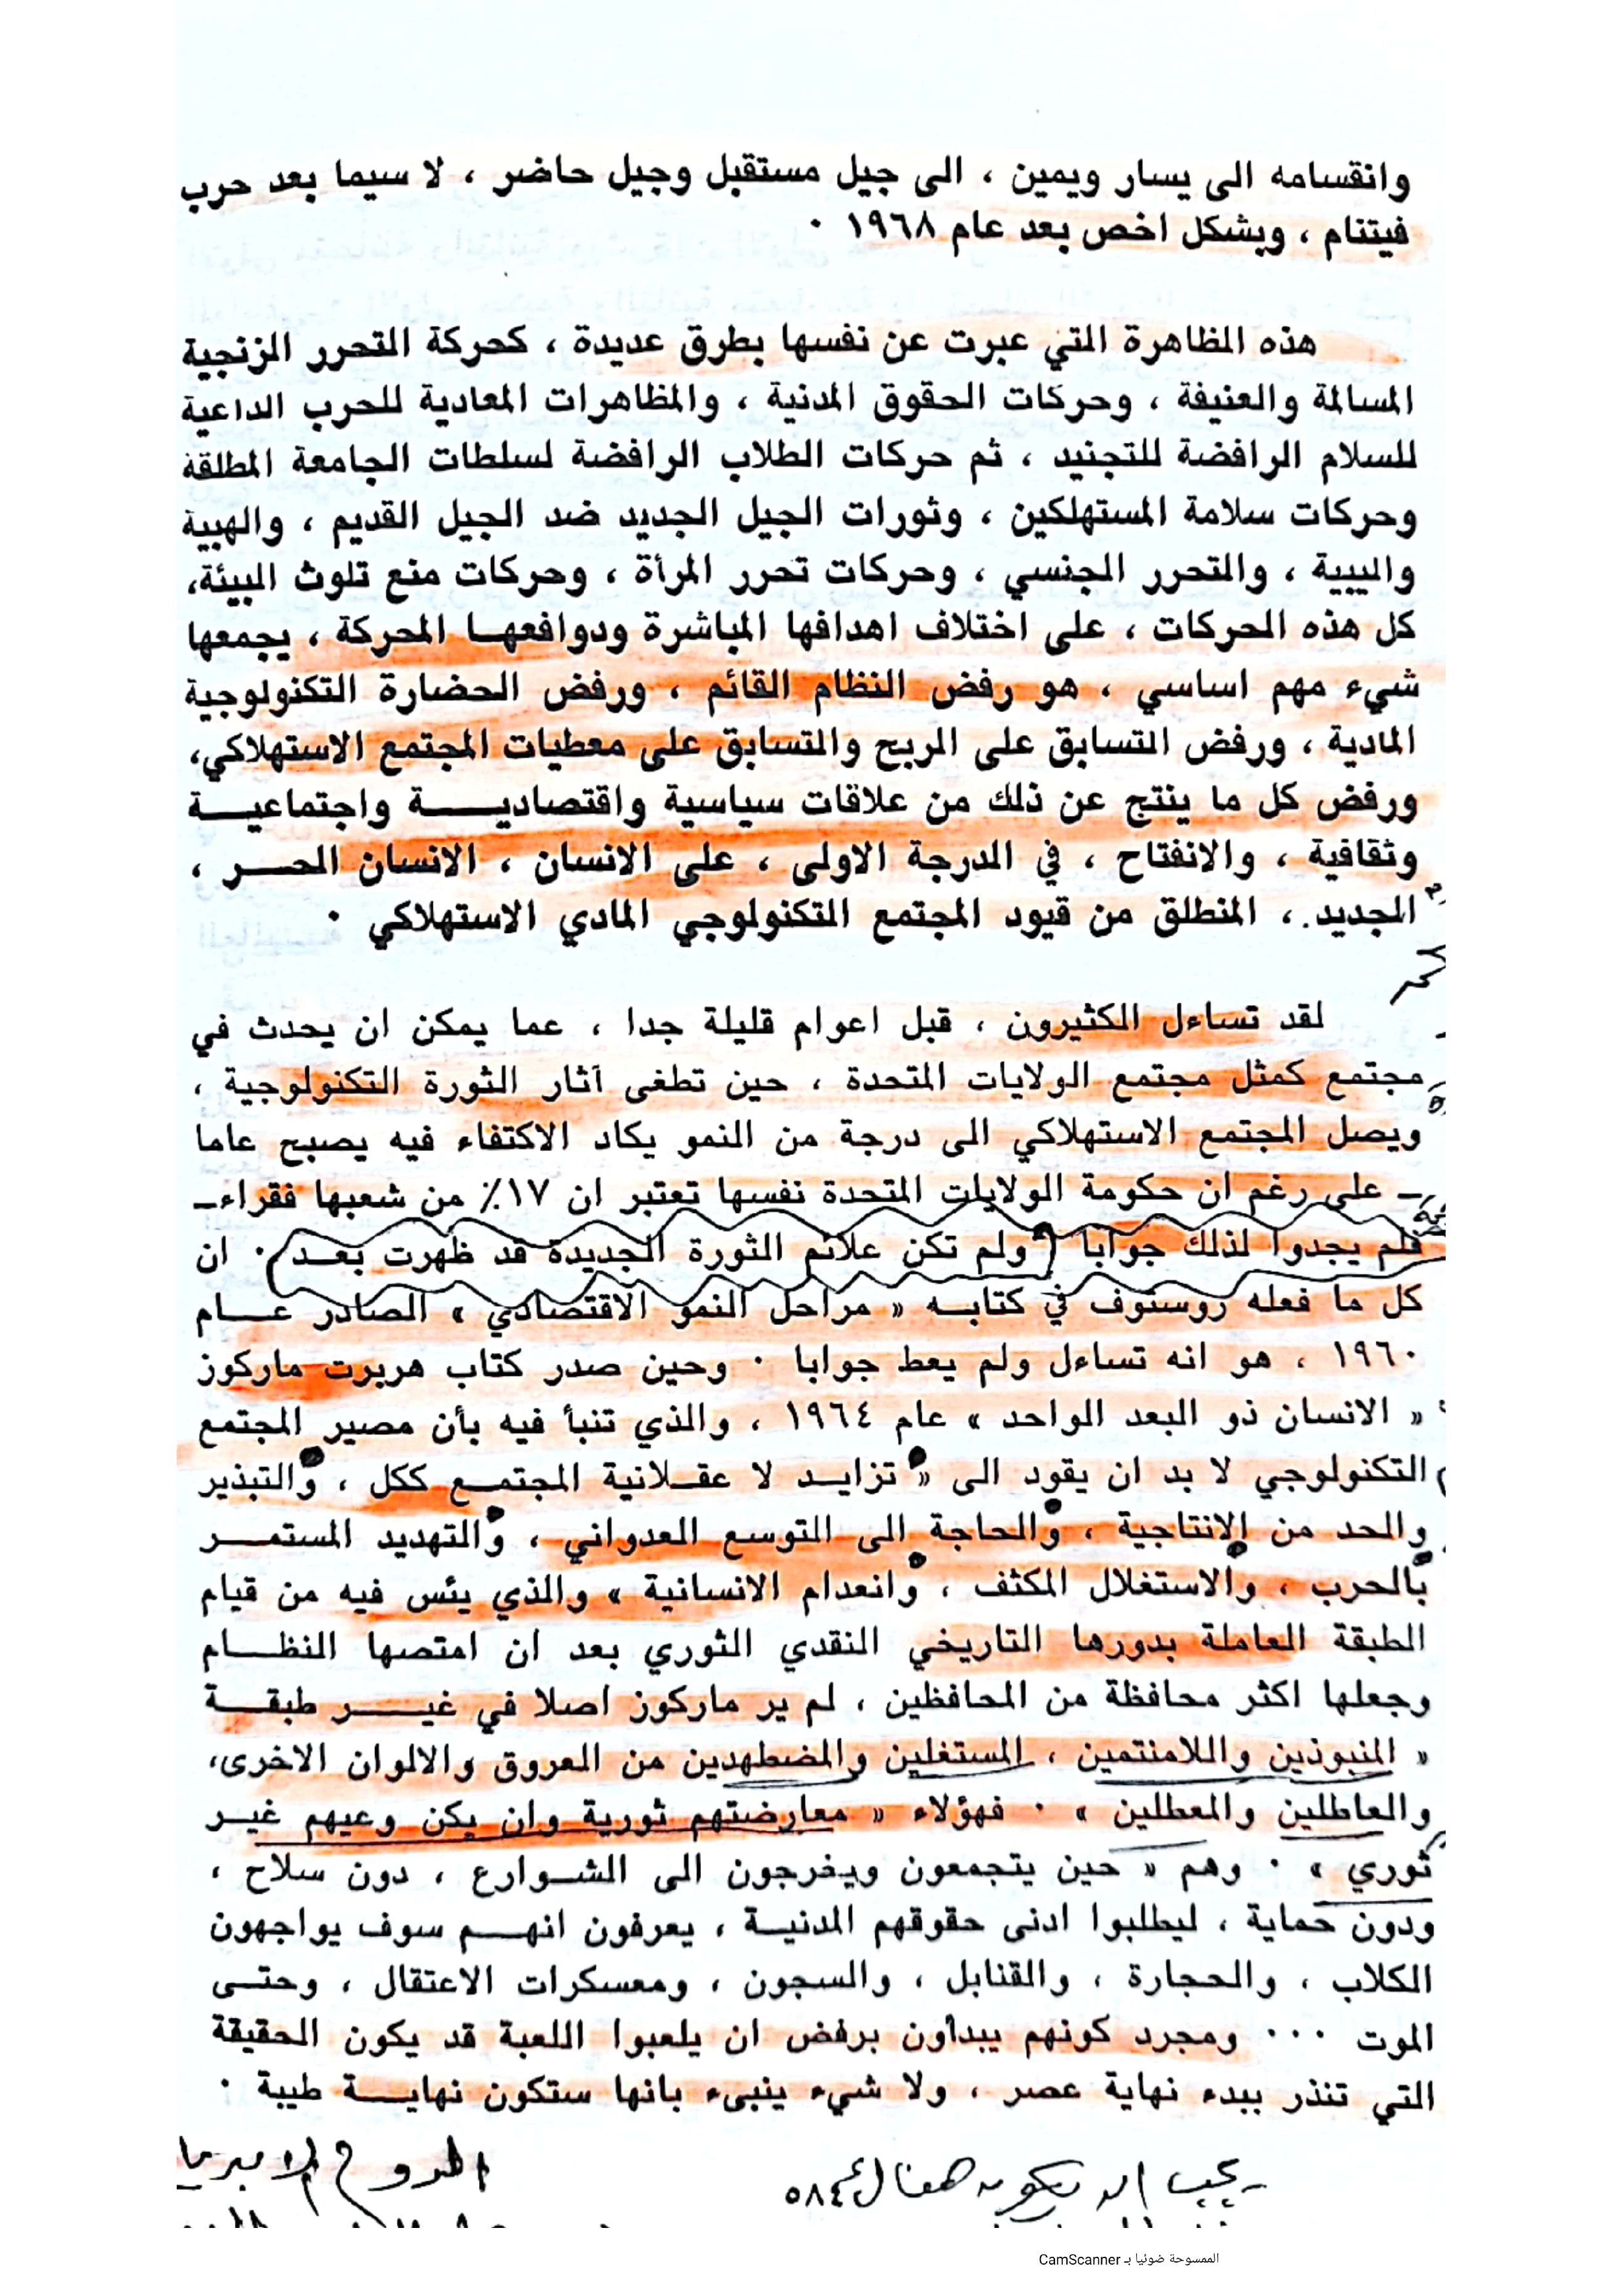 وانقسامه الى يسار ويمين ، الى جيل مستقبل وجيل حاضر ، لا سيما بعد حرب
فيتنام ، وبشكل اخص بعد عام ١٩٦٨ ·
هذه الظاهرة التي عبرت عن نفسها بطرق عديدة ، كحركة التحرر الزنجية
المسالمة والعنيفة ، وحركات الحقوق المدنية ، والمظاهرات المعادية للحرب الداعية
للسلام الرافضة للتجنيد ، ثم حركات الطلاب الرافضة لسلطات الجامعة المطلقة
وحركات سلامة المستهلكين ، وثورات الجيل الجديد ضد الجيل القديم ، والهيبية
والييبية ، والتحرر الجنسي ، وحركات تحرر المرأة ، وحركات منع تلوث البيئة،
كل هذه الحركات ، على اختلاف اهدافها المباشرة ودوافعهـا المحركة ، يجمعها
شيء مهم اساسي ، هو رفض النظام القائم ، ورفض الحضارة التكنولوجية
المادية ، ورفض التسابق على الربح والتسابق على معطيات المجتمع الاستهلاكي،
ورفض كل ما ينتج عن ذلك من علاقات سياسية واقتصاديـــة واجتماعيـــة
وثقافية ، والانفتاح ، في الدرجة الاولى ، على الانسان ، الانسان الحـــر ،
الجديد. ، المنطلق من قيود المجتمع التكنولوجي المادي الاستهلاكي ·
لقد تساءل الكثيرون ، قبل اعوام قليلة جدا ، عما يمكن ان يحدث في
مجتمع كمثل مجتمع الولايات المتحدة ، حين تطغى آثار الثورة التكنولوجية ،
ويصل المجتمع الاستهلاكي الى درجة من النمو يكاد الاكتفاء فيه يصبح عاما
ـ على رغم ان حكومة الولايات المتحدة نفسها تعتبر ان ١٧٪ من شعبها فقراءـ
فلم يجدوا لذلك جوابا ( ولم تكن علائم الثورة الجديدة قد ظهرت بعـد ) · ان
كل ما فعله روستوف في كتابـه « مراحل النمو الاقتصادي » الصادر عـــام
١٩٦٠ ، هو انه تساءل ولم يعط جوابا · وحين صدر كتاب هربرت ماركوز
« الانسان ذو البعد الواحد » عام ١٩٦٤ ، والذي تنبأ فيه بأن مصير المجتمع
التكنولوجي لا بد ان يقود الى « تزايـد لا عقـلانية المجتمـع ككل ، والتبذير
والحد من الإنتاجية ، والحاجة الى التوسع العدواني ، والتهديد المستمـــر
بالحرب ، والاستغلال المكثف ، وانعدام الانسانية » والذي يئس فيه من قيام
الطبقة العاملة بدورها التاريخي النقدي الثوري بعد ان امتصها النظــام
وجعلها اكثر محافظة من المحافظين ، لم ير ماركوز اصلا في غيـــر طبقــة
« المنبوذين واللامنتمين ، المستغلين والمضطهدين من العروق والالوان الاخرى،
والعاطلين والمعطلين » · فهؤلاء « معارضتهم ثورية وان يكن وعيهم غيـر
ثوري » · وهم « حين يتجمعون ويخرجون الى الشـوارع ، دون سلاح ،
ودون حماية ، ليطلبوا ادنى حقوقهم المدنيـة ، يعرفون انهـم سوف يواجهون
الكلاب ، والحجارة ، والقنابل ، والسجون ، ومعسكرات الاعتقال ، وحتـى
الموت ··· ومجرد كونهم يبدأون برفض ان يلعبوا اللعبة قد يكون الحقيقة
التي تنذر ببدء نهاية عصر ، ولا شيء ينبىء بانها ستكون نهايـــة طيبة ·
يجب ان يكون هناك
٥٨٤
الممسوحة ضوئيا بـ CamScanner